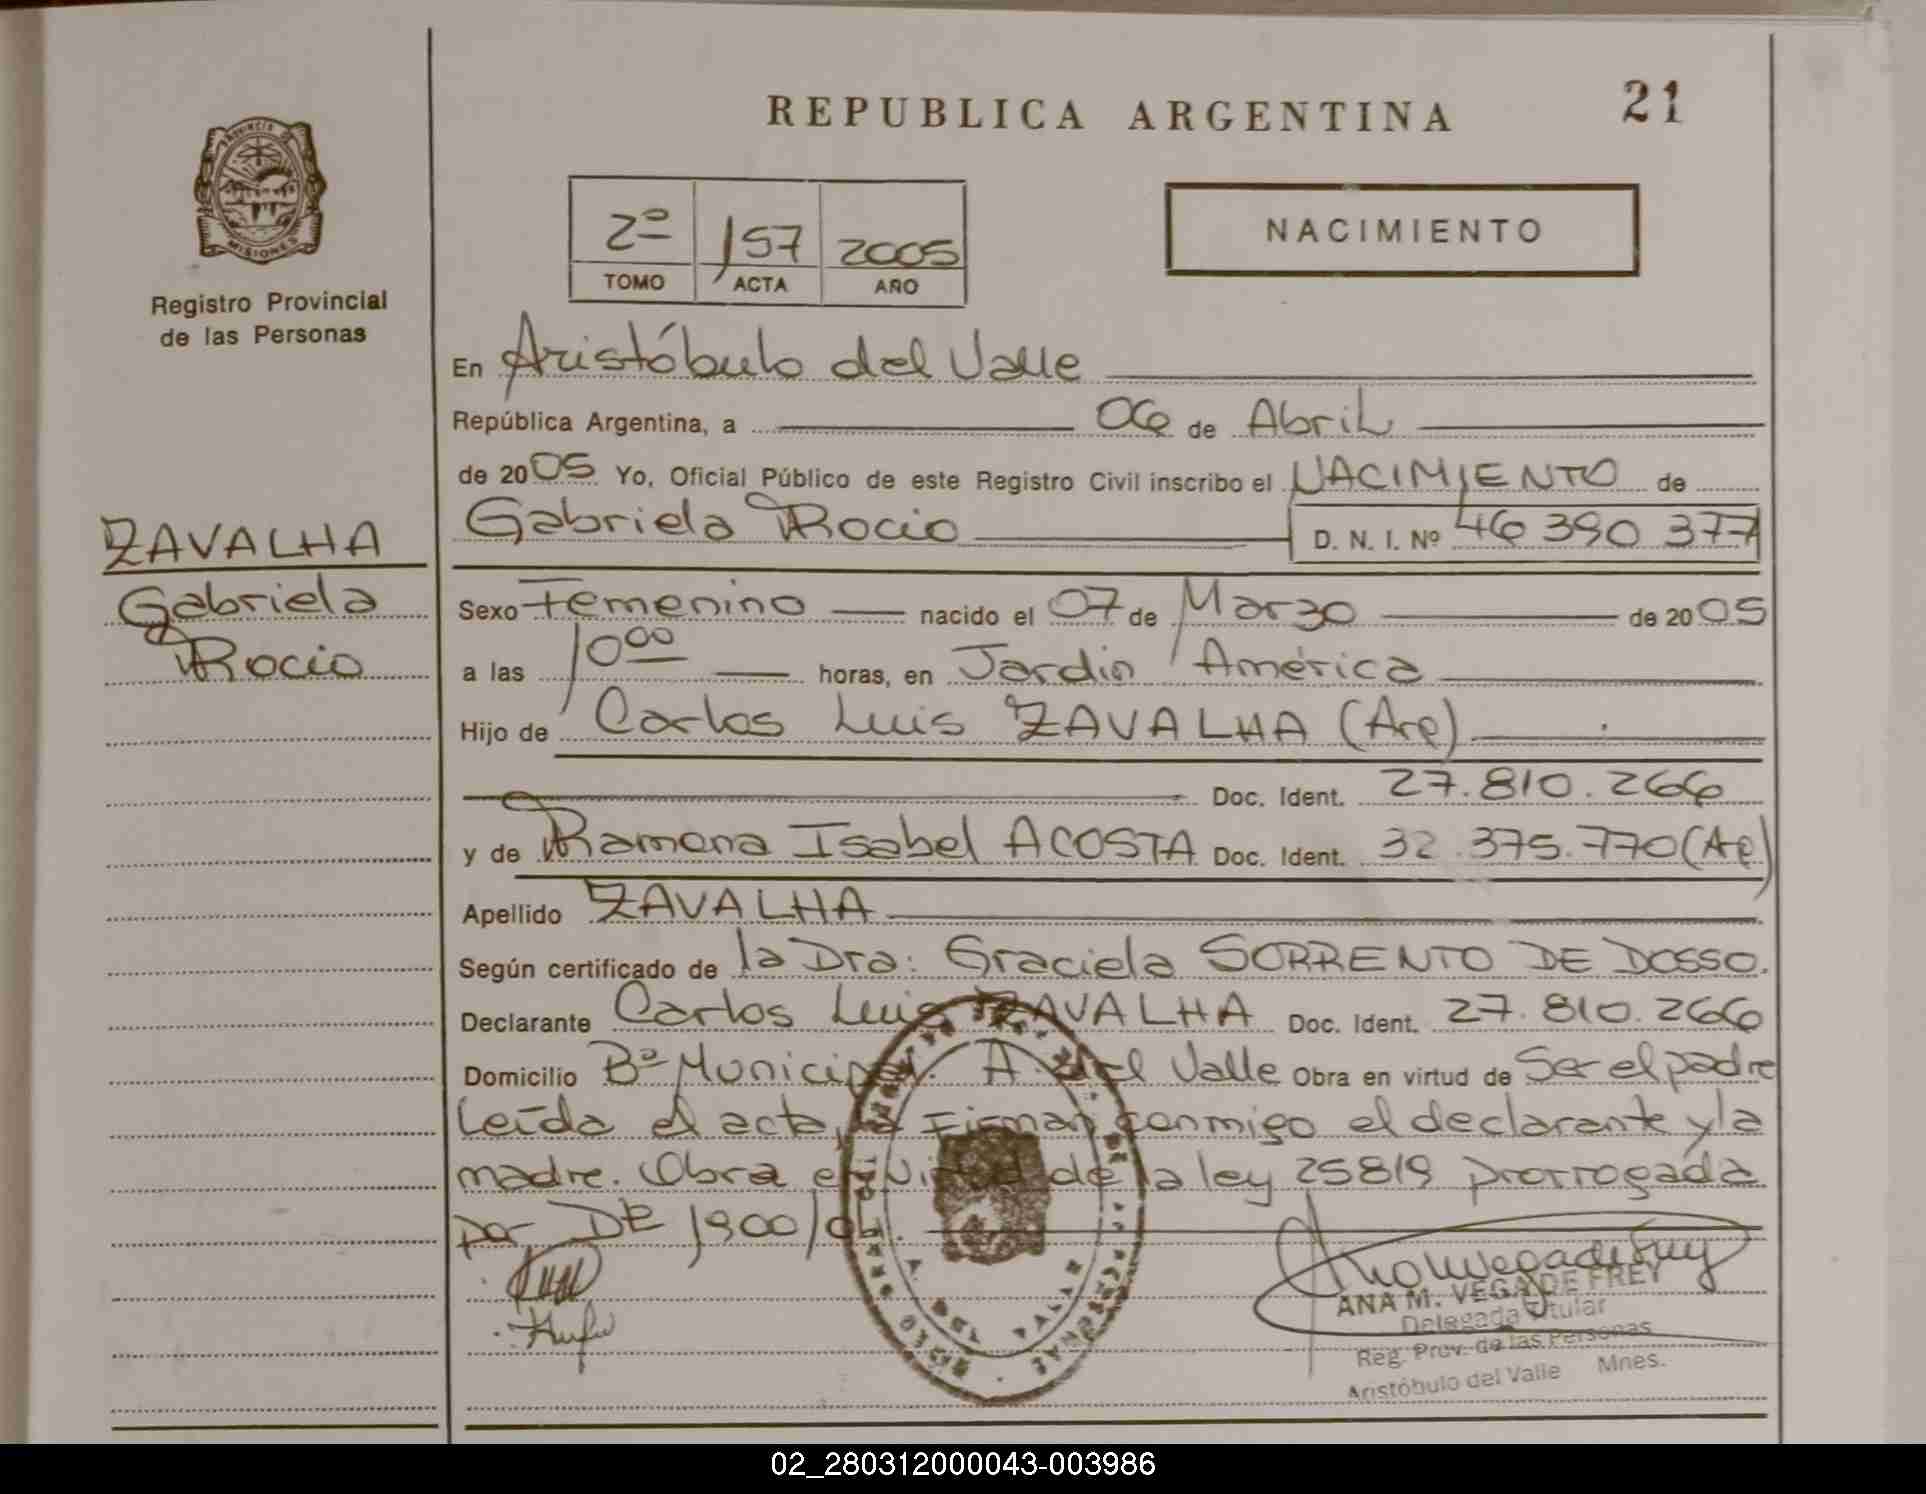 REPUBLICA ARGENTINA
21
PROVINCIA DE
MISIONES
Registro Provincial
de las Personas
2º 157 2005
TOMO ACTA AÑO
NACIMIENTO
En Aristóbulo del Valle
República Argentina, a 06 de Abril
de 2005 Yo, Oficial Público de este Registro Civil inscribo el NACIMIENTO de
Gabriela Rocio D. N. I. Nº 46 390 377
ZAVALHA
Gabriela
Rocio
Sexo Femenino nacido el 07 de Marzo de 2005
a las 10 00 horas, en Jardin América
Hijo de Carlos Luis ZAVALHA (Arg)
Doc. Ident. 27.810.266
y de Ramona Isabel ACOSTA Doc. Ident. 32.375.770 (Arg)
Apellido ZAVALHA
Según certificado de la Dra: Graciela SORRENTO DE DOSSO.
Declarante Carlos Luis ZAVALHA Doc. Ident. 27.810.266
Domicilio Bº Municipal. A. del Valle Obra en virtud de Ser el padre
Leída el acta, la Firman conmigo el declarante y la
madre. Obra en virtud de la ley 25819 prorrogada
por DE 1900/04.
ANA M. VEGA DE FREY
Delegada Titular
Reg. Prov. de las Personas
Aristóbulo del Valle Mnes.
02_280312000043-003986